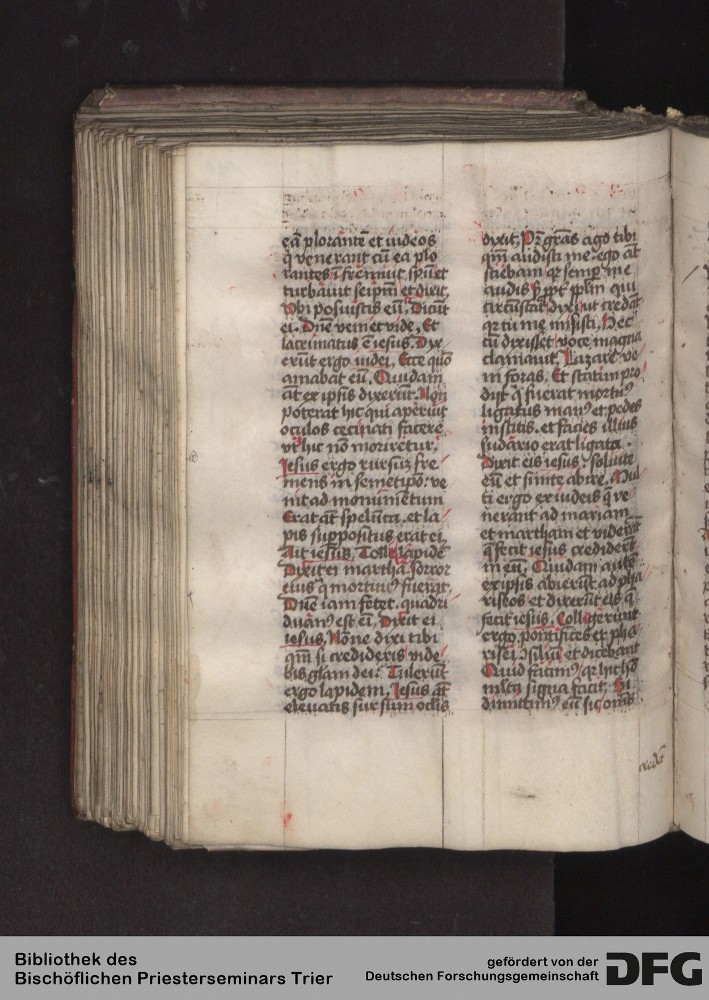 eā plorantē et iudeos
q̄ venerant cū ea plo
rantes īfremuit spū et
turbauit seipm̄ et dixit.
Vbi posuistis eū. Dicūt
ei. Dn̄e veni et vide. Et
lacrimatus ē iesus. Dix
erūt ergo iudei. Ecce quō
amabat eū. Quidam
āt ex ipsis dixerūt. Non
poterat hic qui aperuit
oculos ceci nati facere
vt hic nō moriretur.
Iesus ergo rursus fre
mens in semetipō. ve
nit ad monumētum
Erat āt spelūca. et la
pis suppositus erat ei.
Ait iesus. Tolle lapidē
Dixit ei martha. sorror
eius q̄ mortuus fuerat.
Dn̄e iam fetet. quadri
duan9 est eī. Dixit ei
iesus. Nōne dixi tibi
qm̄ si credideris vide
bis glām dei. Tulerūt
ergo lapidem. Iesus āt
eleuatis sursum oclis
dixit. Pr̄ grās ago tibi
qm̄ audisti me. ego āt
sciebam qr semp me
audis
circūstat dixi vt credāt
qr tu me misisti. Hec
cū dixisset voce magna
clamauit. Lazare ve
ni foras. Et statim pro
dijt q̄ fuerat mortu9
ligatus man9 et pedes
institis. et facies illius
sudario erat ligata.
Dixit eis iesus. soluite
eū et sinite abire. Mul
ti ergo ex iudeis q̄ ve
nerant ad mariam
et martham et viderāt
q̄ fecit iesus crediderūt
in eū. Quidam autē
ex ipsis abierūt ad pha
riseos et dixerūt eis q̄
fecit iesus. Collegerunt
ergo pontifices et pha
risei ɔsiliū et dicebant
Quid facim9 qr hic hō
mlta signa facit. Si
dimittim9 eū sic omēs
credēt
Bibliothek des
Bischöflichen Priesterseminars Trier
gefördert von der
Deutschen Forschungsgemeinschaft
DFG